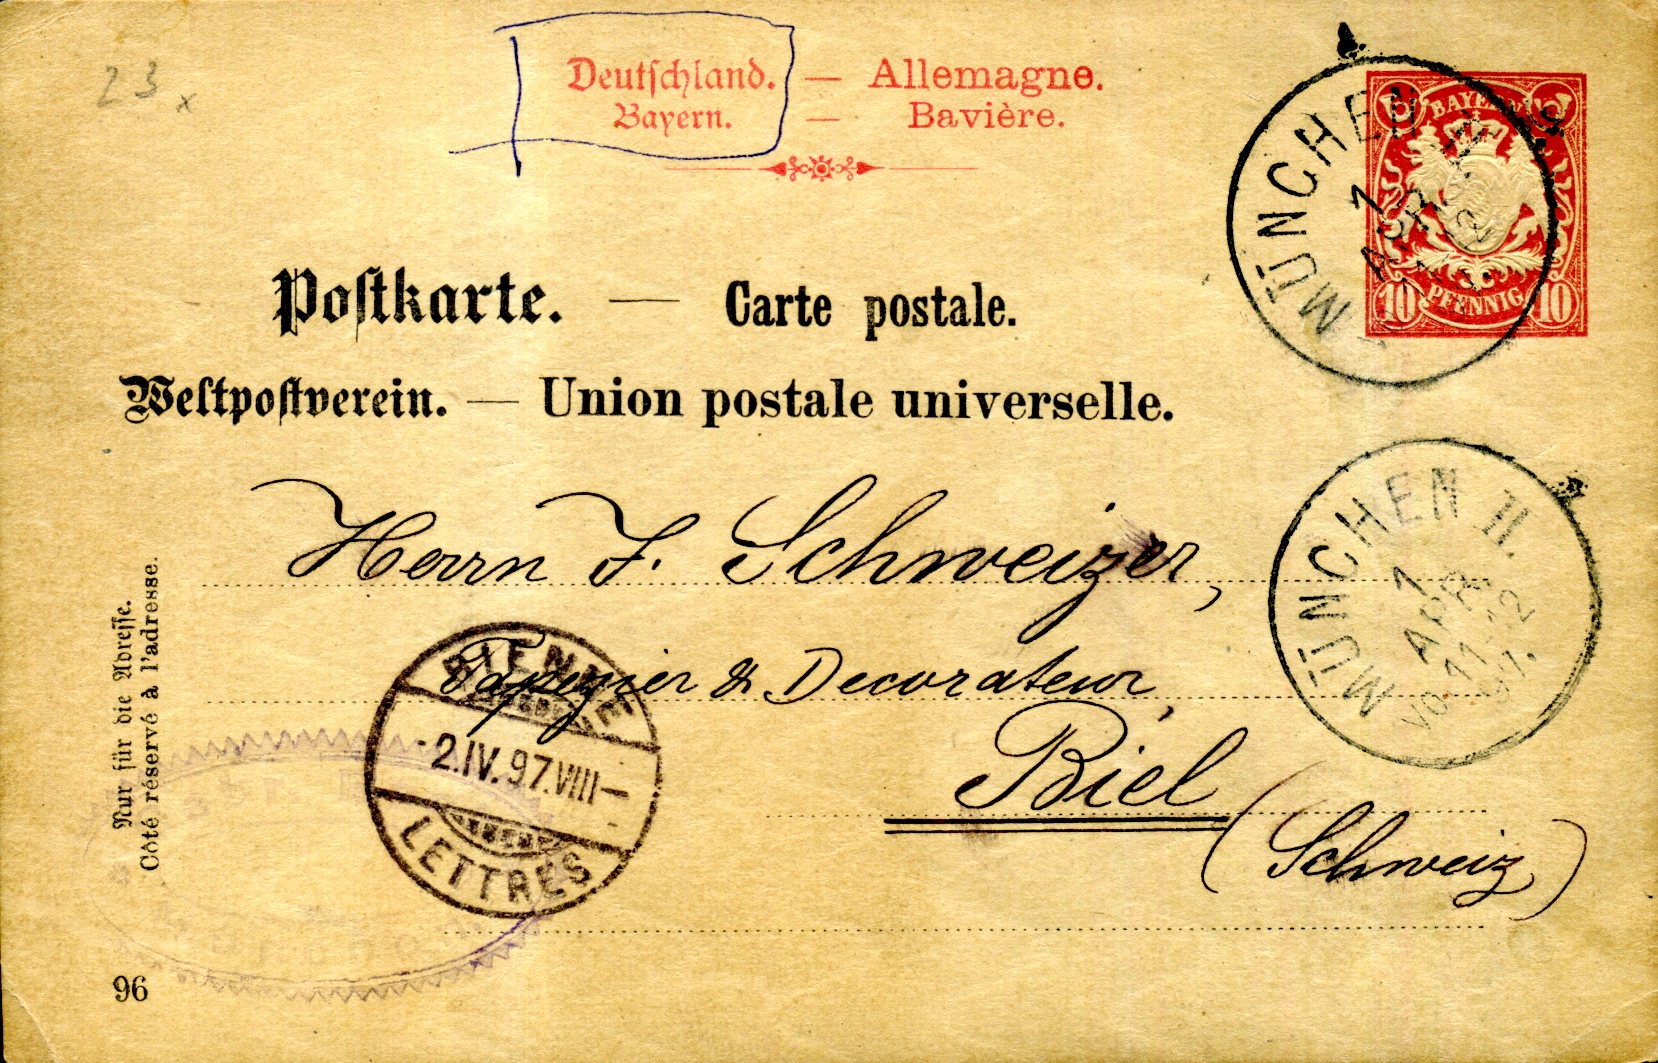 23 x
Deutschland. — Allemagne.
Bayern. — Bavière.
BAYERN
10 PFENNIG 10
MÜNCHEN
1
APR
12
Postkarte. — Carte postale.
Weltpostverein. — Union postale universelle.
MÜNCHEN II.
1
APR
VO. 11-12
97.
Herrn F. Schweizer,
Tapezier & Decorateur,
Biel
(Schweiz)
BIENNE
2.IV.97.VIII—
LETTRES
Nur für die Adresse.
Côté réservé à l'adresse.
96